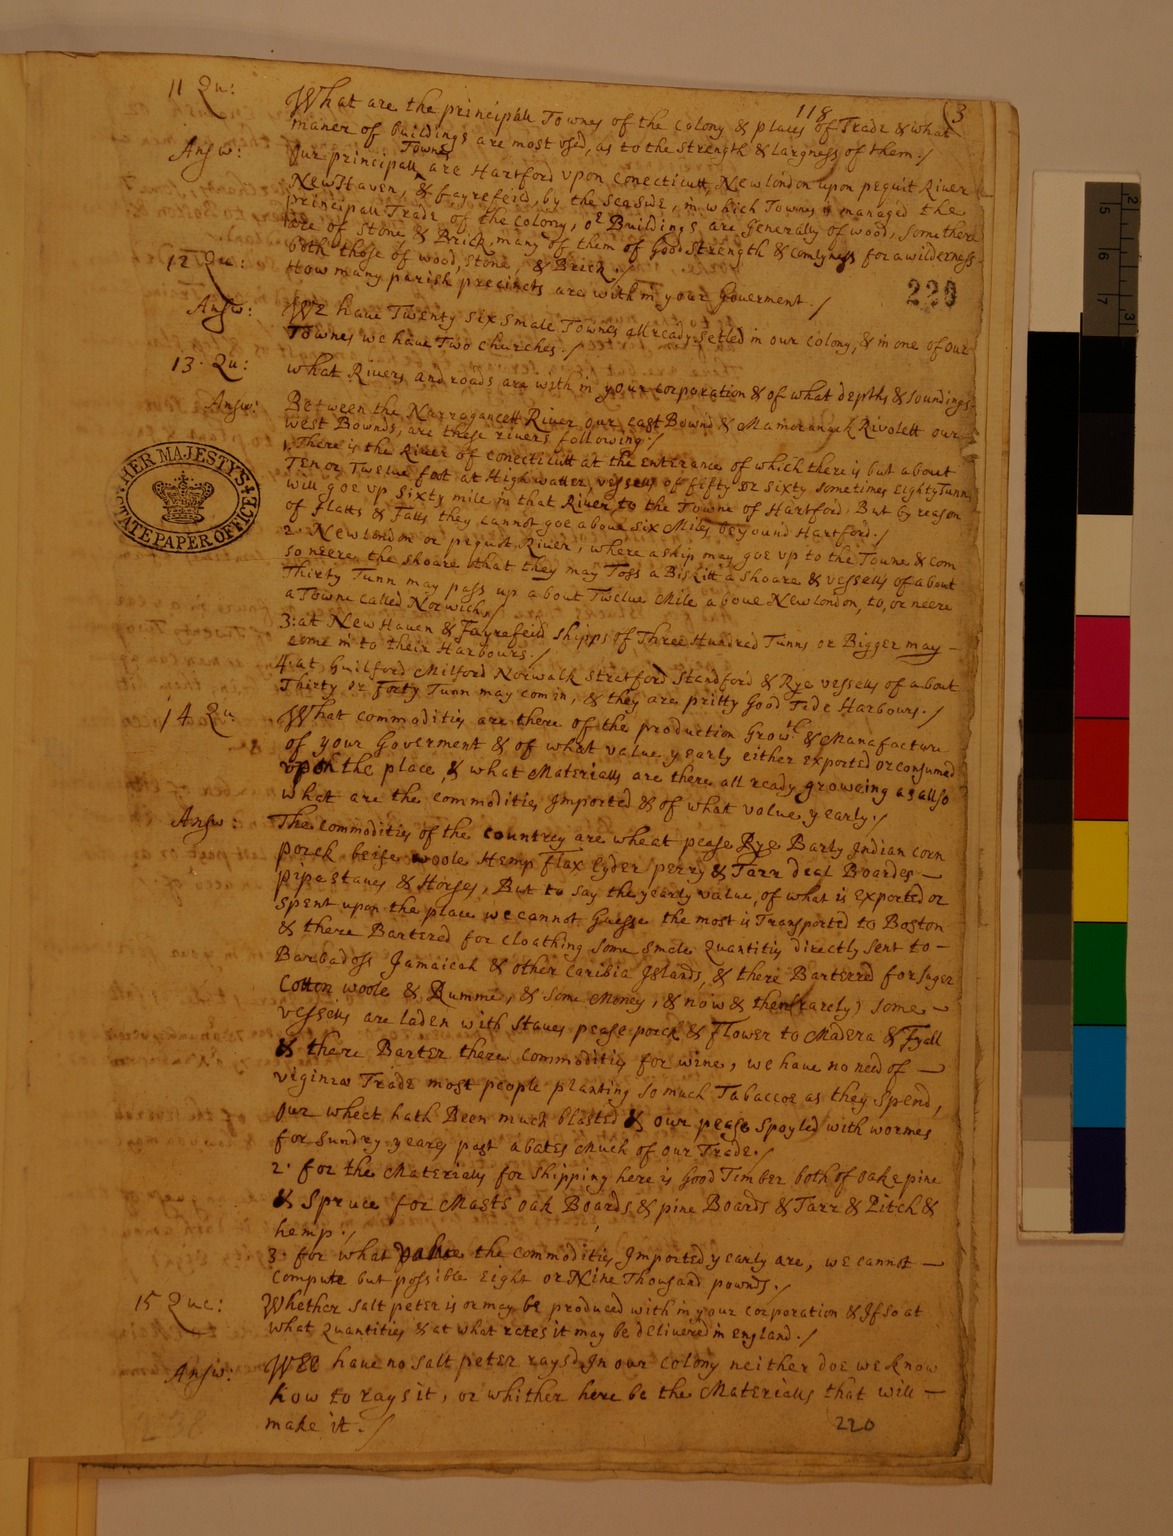 118 (3
11 Qu: What are the principall Townes of the Colony & places of Trade & what
maner of buildings are most vsed, as to the strength & largness of them ./
Answ: Our principall Townes are Hartford vpon Conecticutt, New london upon pequit River
New Haven, & fayrefeild, by the sea side, in which Townes is managed the
principall Trade of the Colony, or Buildings are Generally of wood, some there
are of stone & Brick, many of them of Good strength & comlyness for a wilderness
both those of wood, stone, & Brick.
12 Qu: How many parish precincts are with in your Gouerment ./
220
Answ: We haue Twenty six smale Townes allready setled in our Colony, & in one of our
Townes we haue Two Churches ./
13. Qu: what Rivers and roads are with in your corporation & of what depths & soundings
Answ: Between the Narragancett River our east Bownd & Mamoranack Rivolett our
west Bownds, are these rivers following ./
1. There is the River of Conecticutt at the enterance of which there is but about
Ten or Twelve foot at High watter, vessells of fifty or sixty sometimes Eighty Tunn
will goe vp sixty mile in that River to the Towne of Hartford But by reason
of flatts & Falls they cannot goe aboue six Miles beyound Hartford ./
2. New london or pequit River, where a ship may goe vp to the Towne & com
so neere the shoare that they may Toss a Biskitt a shoare & vessells of about
Thirty Tunn may pass up about Twelue Mile aboue New london, to, or neere
a Towne called Norwich ./
3: at New Haven & Fayrefeild shipps of Three Hundred Tunns or Bigger may –
come in to their Harbours ./
4: at Guilford Milford Norwalk Stratford Standford & Rye vessells of about
Thirty or Forty Tunn may com in, & they are pritty Good Tide Harbours ./
14 Qu What commodities are there of the production Growth & Manafacture
of your Goverment & of what value yearly either exported or consumed
vpon the place, & what Materialls are there all ready groweing as allso
what are the commodities Imported & of what value yearly ./
Answ: The commodities of the countrey are wheat pease Rye Barly Indian corn
porck beife woole Hemp Flax Cyder perry & Tarr deal Boardes –
pipe staves & Horses, But to say the yearly value, of what is exported or
spent upon the place we cannot Guesse the most is Transported to Boston
& there Bartered for cloathing some smale quantitis directly sent to –
Barbadoss Jamaicah & other Caribia Islands, & there Barterred for suger
Cotton woole & Rumme, & some Money, & now & then (rarely) some –
vessells are laden with staves pease porck & flower to Madera & Fyall
& there Barter there commodities for wine, we have no need of –
viginia Trade most people planting so much Tabaccoe as they spend,
our wheat hath Been much blasted & our pease spoyled with wormes
for sundry yeares past abates much of our Trade ./
2. for the Materialls for shipping here is Good Timber both of oak pine
& Spruce for Masts oak Boards & pine Boards & Tarr & Pitch &
hemp ./
3. for what value the commodities Imported yearly are, we cannot –
compute but possible Eight or Nine Thousand pownds ./
15 Que: Whether salt peter is or may be produced with in your corporation & If so at
what quantities & at what rates it may be delivered in England ./
Answ: Wee have no salt peter raysd In our Colony neither doe we know
how to rays it, or whither here be the Materialls that will –
make it ./
220
HER MAJESTY'S
STATE PAPER OFFICE